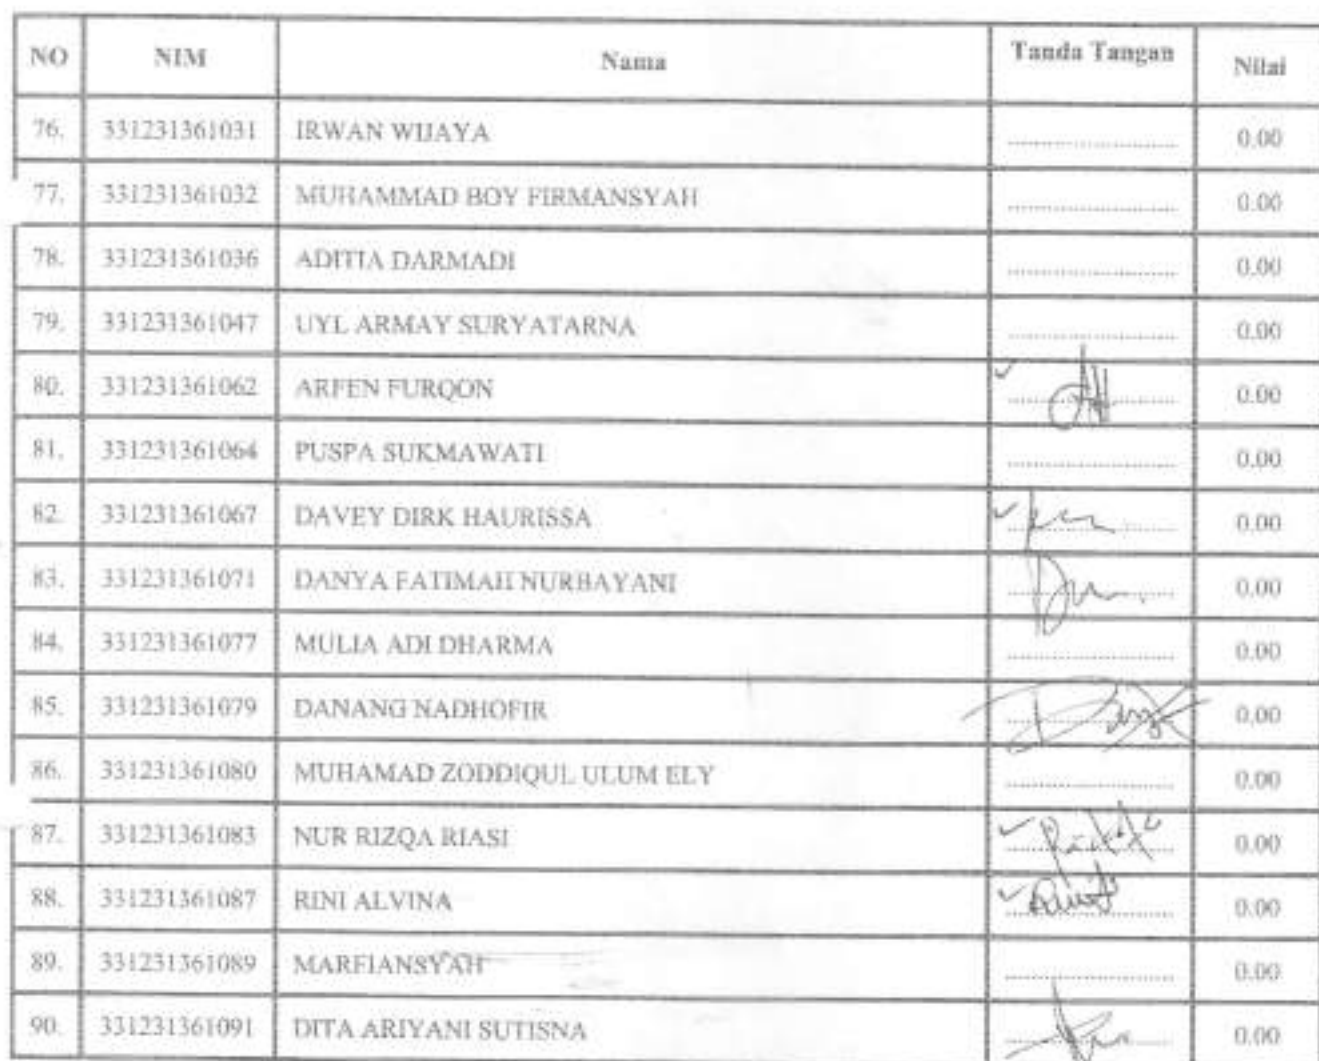 NO NIM Nama Tanda Tangan Nilai
76. 331231361031 IRWAN WIJAYA ........................ 0.00
77. 331231361032 MUHAMMAD BOY FIRMANSYAH ........................ 0.00
78. 331231361036 ADITIA DARMADI ........................ 0.00
79. 331231361047 UYL ARMAY SURYATARNA ........................ 0.00
80. 331231361062 ARFEN FURQON ........................ 0.00
81. 331231361064 PUSPA SUKMAWATI ........................ 0.00
82. 331231361067 DAVEY DIRK HAURISSA ........................ 0.00
83. 331231361071 DANYA FATIMAH NURBAYANI ........................ 0.00
84. 331231361077 MULIA ADI DHARMA ........................ 0.00
85. 331231361079 DANANG NADHOFIR ........................ 0.00
86. 331231361080 MUHAMAD ZODDIQUL ULUM ELY ........................ 0.00
87. 331231361083 NUR RIZQA RIASI ........................ 0.00
88. 331231361087 RINI ALVINA ........................ 0.00
89. 331231361089 MARFIANSYAH ........................ 0.00
90. 331231361091 DITA ARIYANI SUTISNA ........................ 0.00